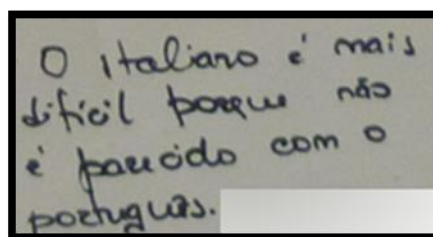 O italiano é mais
difícil porque não
é parecido com o
português.